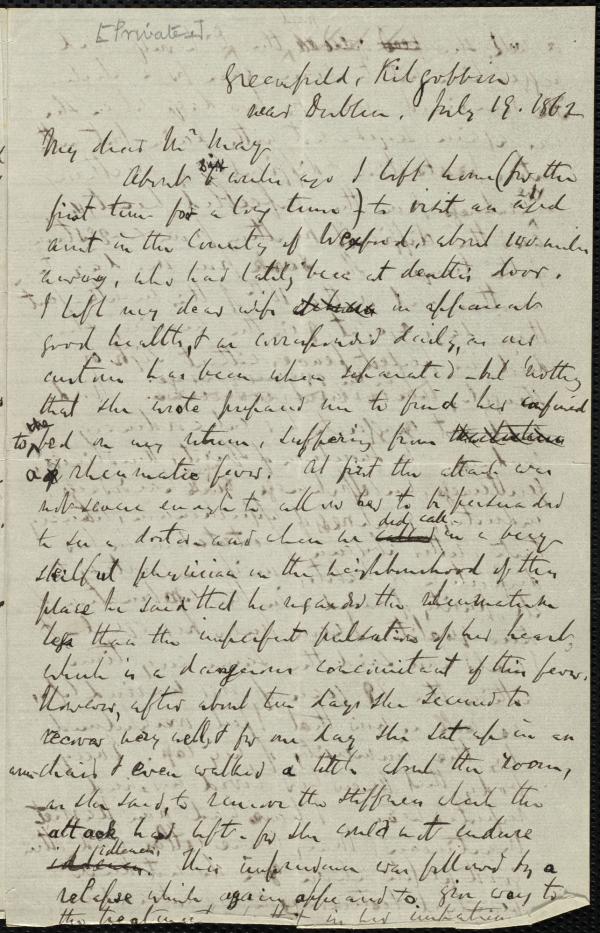 [Privatest.
Greenfield, Kilgobbin
near Dublin, July 19. 1862
My dear Mr May
About six weeks ago I left home (for the
first time for a long time) to visit an aged
aunt in the County of Wexford, about 100 miles
away, who had lately been at death's door.
I left my dear wife in apparent
good health, & we corresponded daily, as our
custom has been when separated - but nothing
that she wrote prepared me to find her confined
to the bed on my return, suffering from
a rheumatic fever. At first the attack was
not severe enough to allow her to be persuaded
to see a doctor and when we did call in a very
skilful physician in the neighbourhood of this
place he said that he regarded the rheumatism
less than the imperfect pulsation of her heart,
which is a dangerous concomitant of this fever.
However, after about ten days she seemed to
recover very well, & for one day she sat up in an
arm chair & even walked a little about the room,
as she said, to remove the stiffness which the
attack had left - for she could not endure
idleness. This imprudence was followed by a
relapse which again appeared to give way to
the treatment. in her